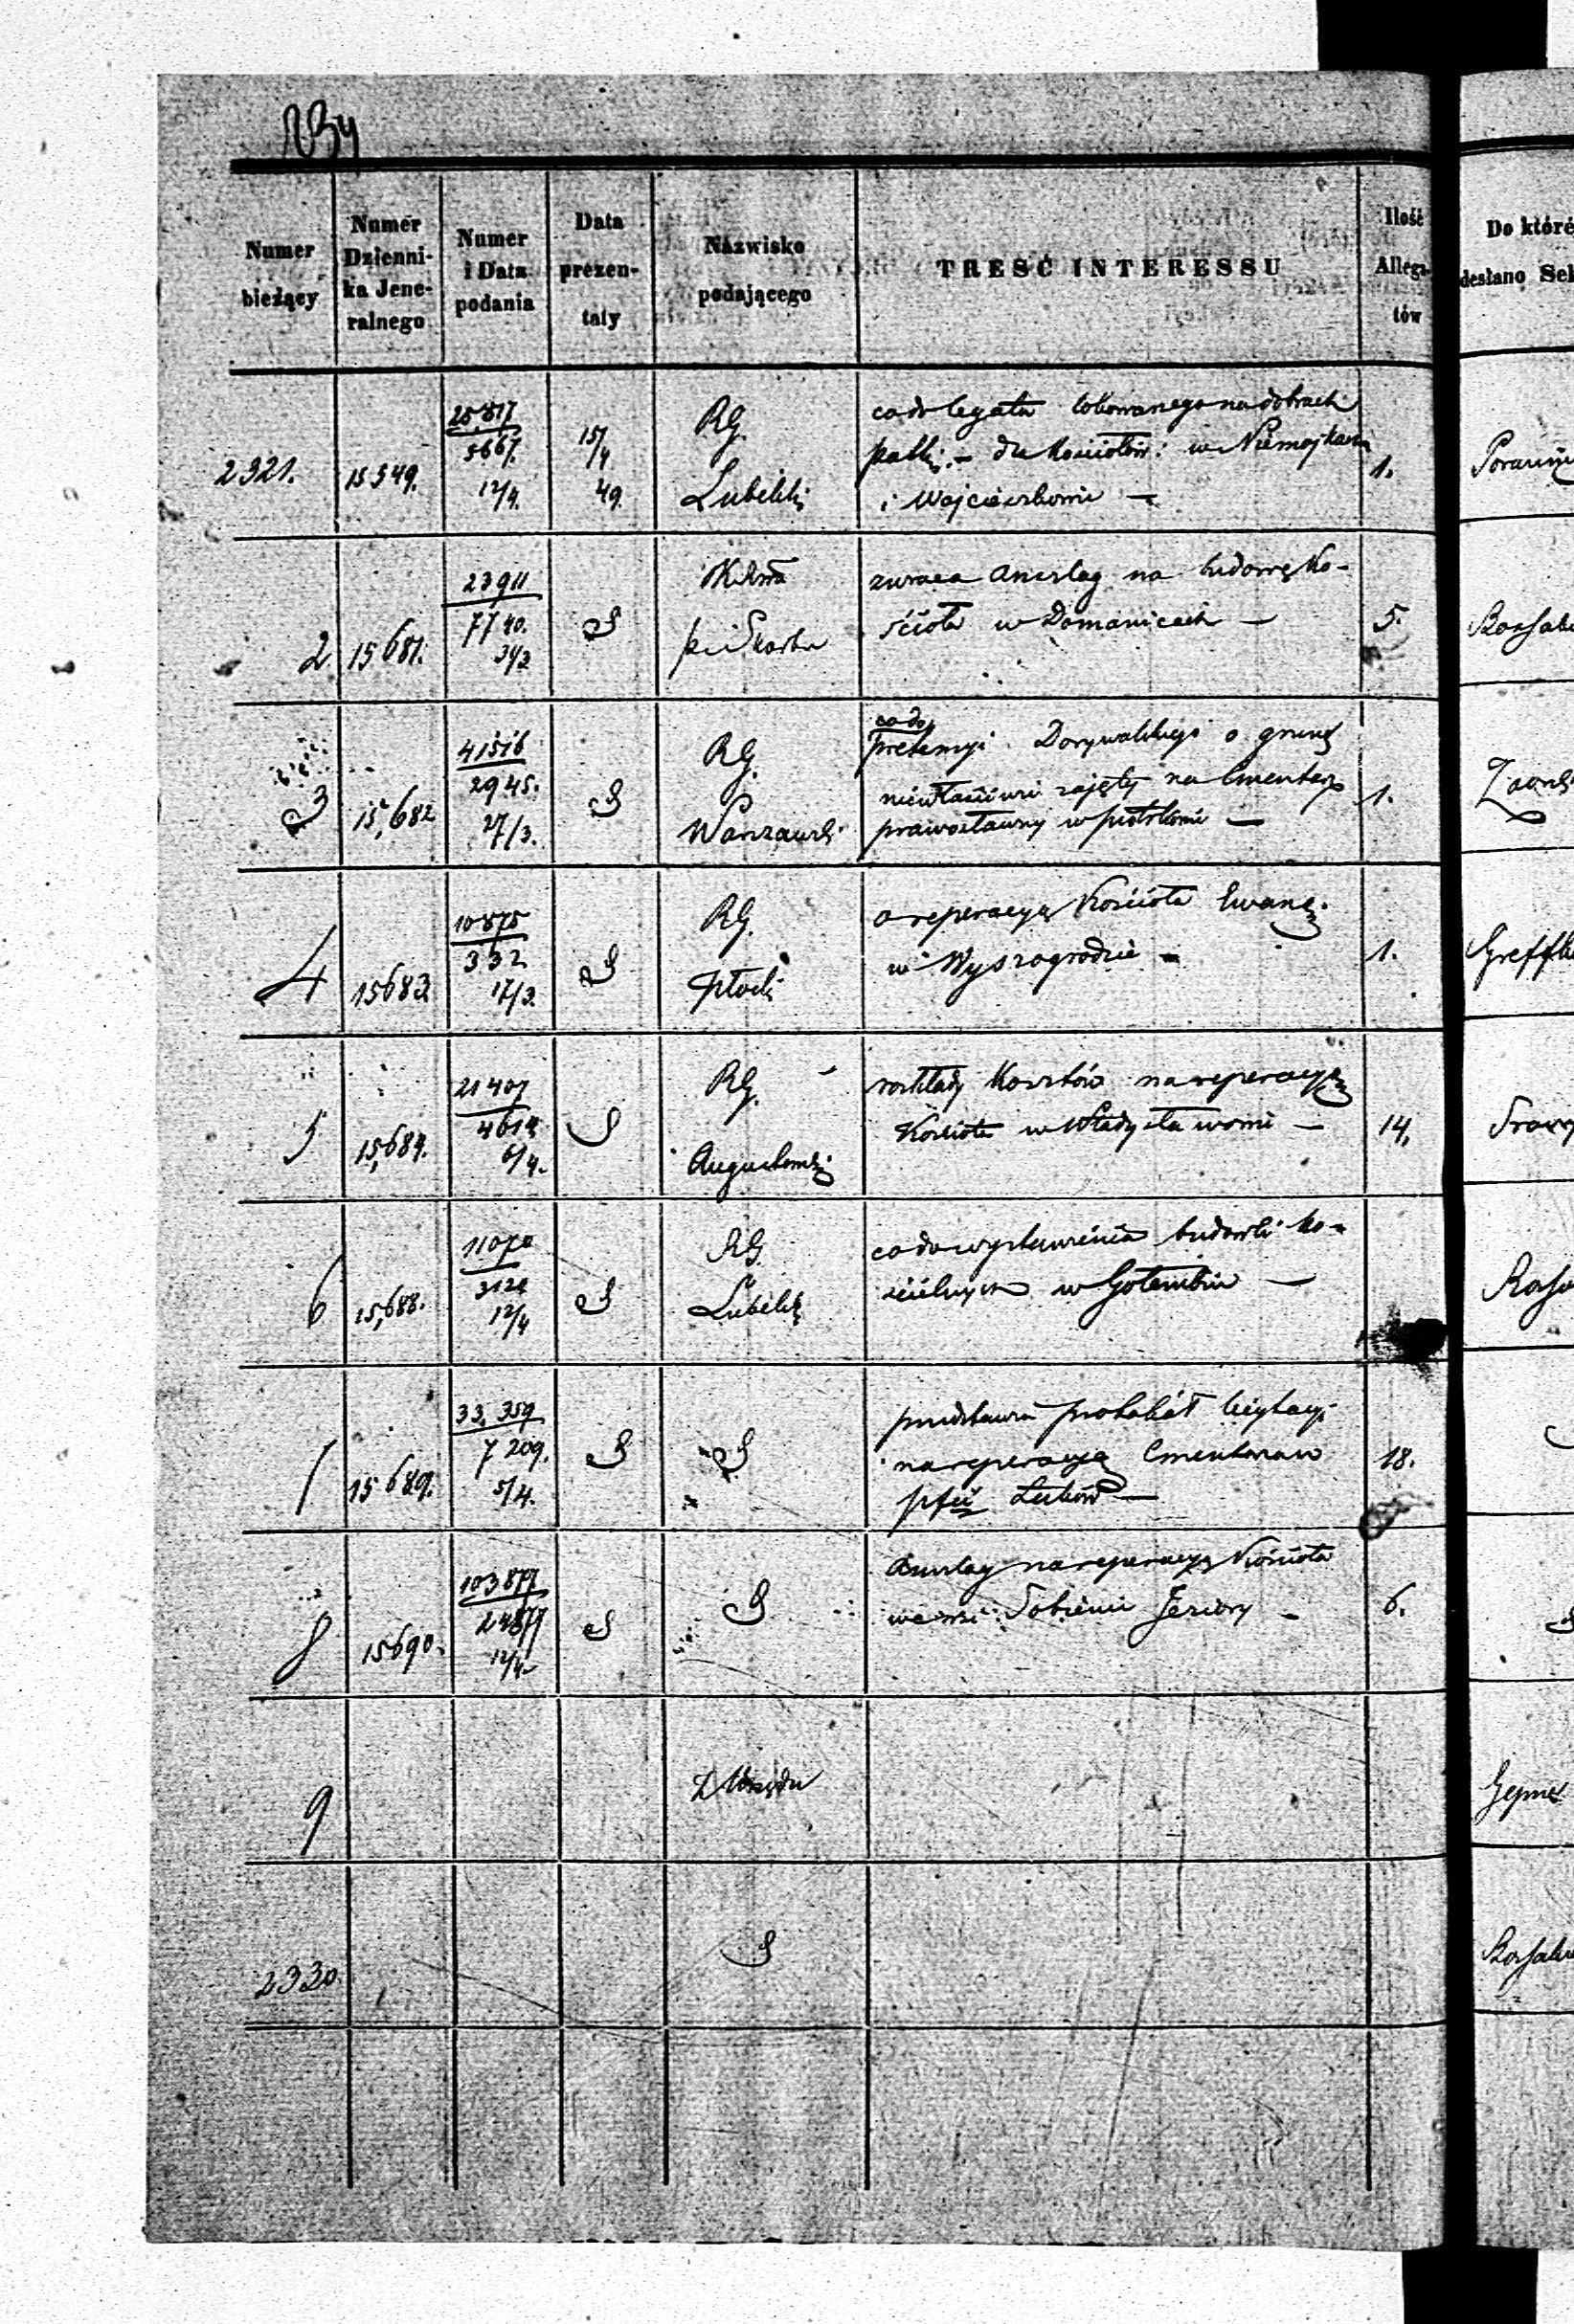 234
Numer bieżący
Numer Dzienni-
ka Jene-
ralnego
Numer
i Data
podania
Data
prezen-
taty
Nazwisko
podającego
TRESĆ INTERESSU
Ilość
Allega-
tów
Do które
desłano Sek
2321. 15549. 5667. 12/4. 15/4 49. RG. Lubelski
co do legatu lokowanego na dobrach
dla Kościołów: w Niemojkach
i Wojcieszkowie — 1.
2 15681. 23911 7740. Skarbu
zwraca Anszlag na budowę Ko-
ścioła w Domanicach — 5.
3 15,682 41516 2945. 27/3. RG. Warszawski
co do
pretensyi Dorywalskiego o grunt
niewłaściwie zajęty na Cmentarz
prawosławny w Piotrkowie — 1.
4 15683 10875 332 17/3. RG. Płocki
o reperacyą Kościoła Ewang.
w Wyszogrodzie — 1.
Greff
5 15,684. 21407 4614 6/4. RG. Augustowski
rozkłady Kosztów na reperacyą
Kościoła w Władysławowie — 14.
6 15,688. 11070 3124 12/4 RG. Lubelski
co do wystawienia budowli ko-
ścielnych w Gołembiu —
7 15689. 33,359 7209. 5/4.
przedstawia protokół licytacyi
na reperacyą Cmentarza w
Łuków — 18.
8 15690. 103877 24877 12/4
Anszlag na reperacyą Kościoła
we wsi: Sobienie Jeziory — 6.
9 Z Urzędu
2330